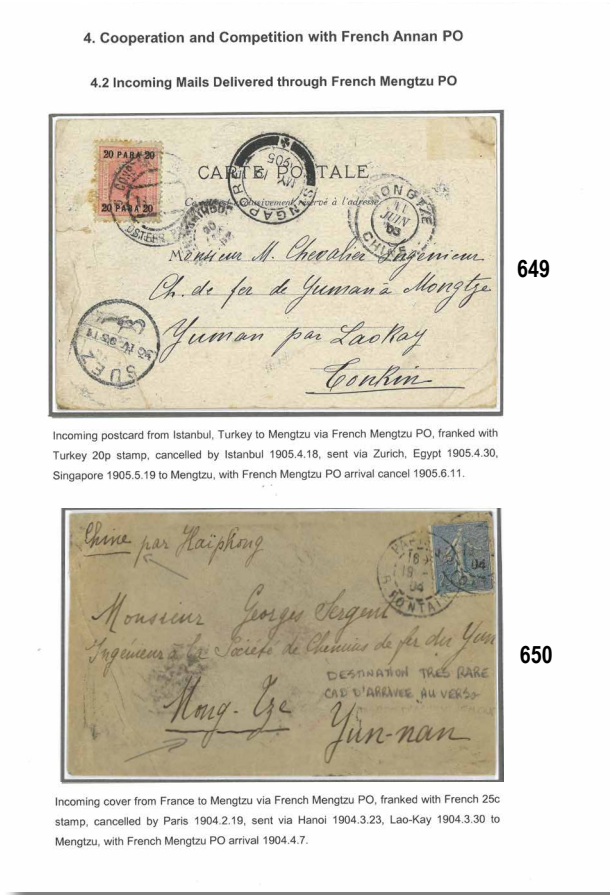 4. Cooperation and Competition with French Annan PO
4.2 Incoming Mails Delivered through French Mengtzu PO
20 PARA 20
20 PARA 20
CARTE POSTALE
réservé à l'adresse
SINGAPORE
MY
19
1905
MONGTZE
11
JUIN
05
CHINE
649
Monsieur M. Chevalier Ingénieur
Ch. de fer de Yunnan à Mongtze
Yunnan par Laokay
Tonkin
SUEZ
Incoming postcard from Istanbul, Turkey to Mengtzu via French Mengtzu PO, franked with
Turkey 20p stamp, cancelled by Istanbul 1905.4.18, sent via Zurich, Egypt 1905.4.30,
Singapore 1905.5.19 to Mengtzu, with French Mengtzu PO arrival cancel 1905.6.11.
Chine par Haïphong
04
Monsieur Georges Sergent
Ingénieur à la Société de Chemins de fer du Yun
650
DESTINATION TRES RARE
CAD D'ARRIVEE AU VERSO
Mong-Tze
Yun-nan
Incoming cover from France to Mengtzu via French Mengtzu PO, franked with French 25c
stamp, cancelled by Paris 1904.2.19, sent via Hanoi 1904.3.23, Lao-Kay 1904.3.30 to
Mengtzu, with French Mengtzu PO arrival 1904.4.7.